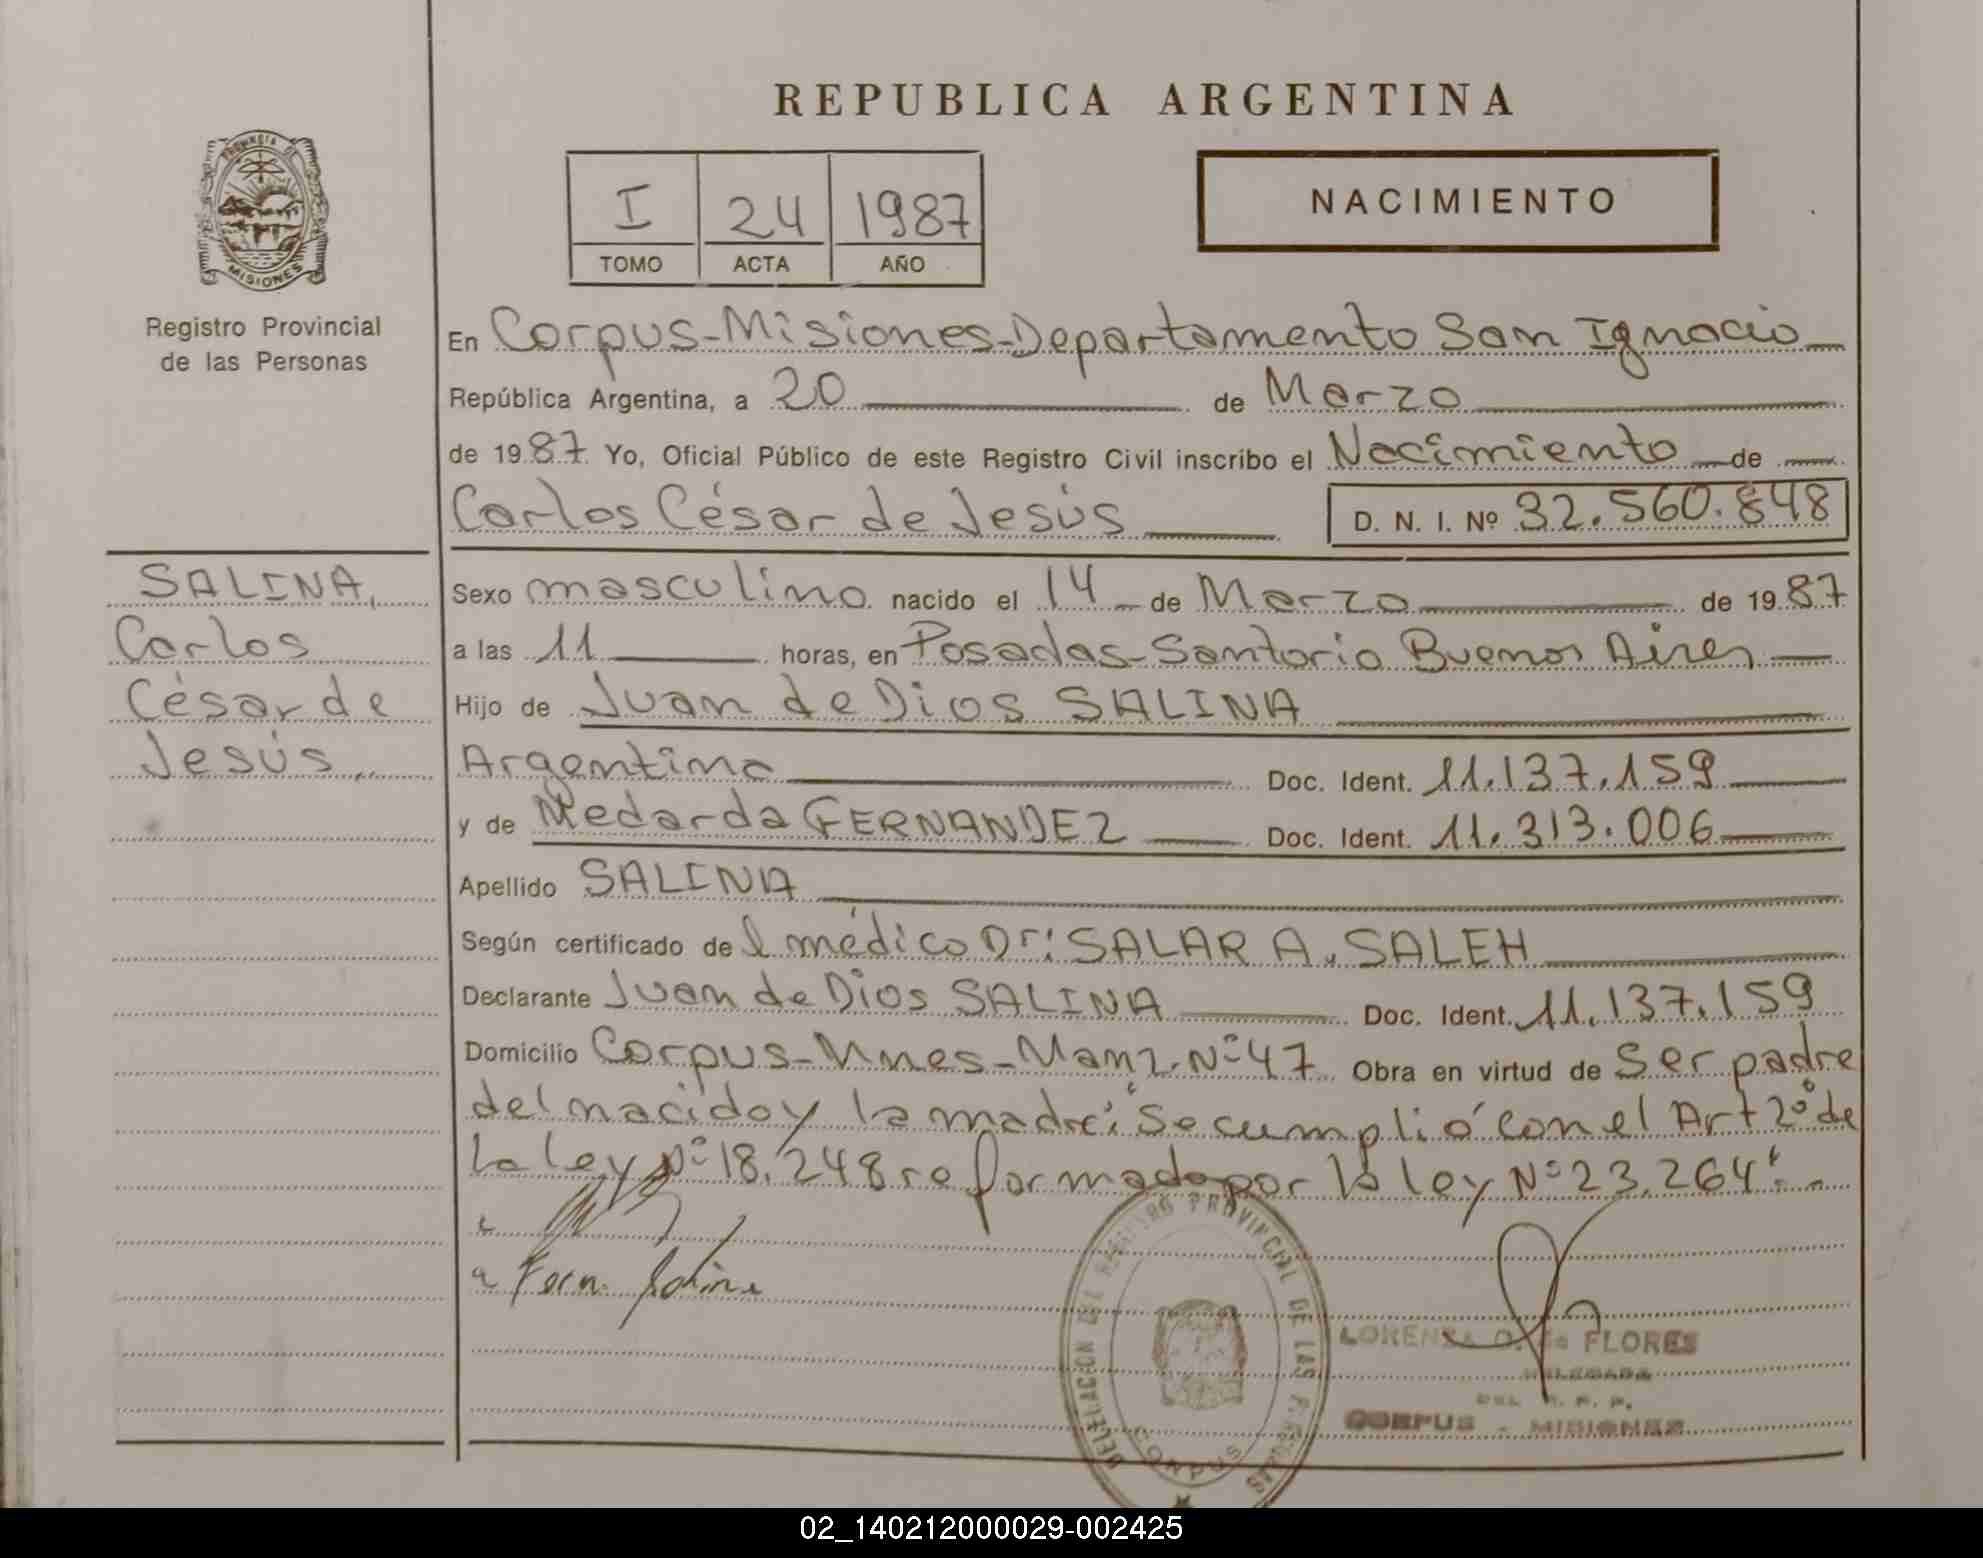 REPUBLICA ARGENTINA
PROVINCIA DE
MISIONES
Registro Provincial
de las Personas
I 24 1987
TOMO ACTA AÑO
NACIMIENTO
En Corpus-Misiones-Departamento San Ignacio
República Argentina, a 20 de Marzo
de 1987 Yo, Oficial Público de este Registro Civil inscribo el Nacimiento de
Carlos César de Jesús D. N. I. Nº 32.560.848
SALINA,
Carlos
César de
Jesús
Sexo masculino nacido el 14 de Marzo de 1987
a las 11 horas, en Posadas-Santorio Buenos Aires
Hijo de Juan de Dios SALINA
Argentina Doc. Ident. 11.137.159
y de Medarda FERNANDEZ Doc. Ident. 11.313.006
Apellido SALINA
Según certificado del médico Dr: SALAR A. SALEH
Declarante Juan de Dios SALINA Doc. Ident. 11.137.159
Domicilio Corpus-Mnes-Manz.Nº47 Obra en virtud de Ser padre
del nacido y la madre: "Se cumplió con el Art 2º de
la ley Nº 18.248 reformado por la ley Nº 23.264".
DELEGACION DEL REGISTRO PROVINCIAL DE LAS PERSONAS
CORPUS
FLORES
DELEGADA
DEL R. P. P.
CORPUS - MISIONES
02_140212000029-002425